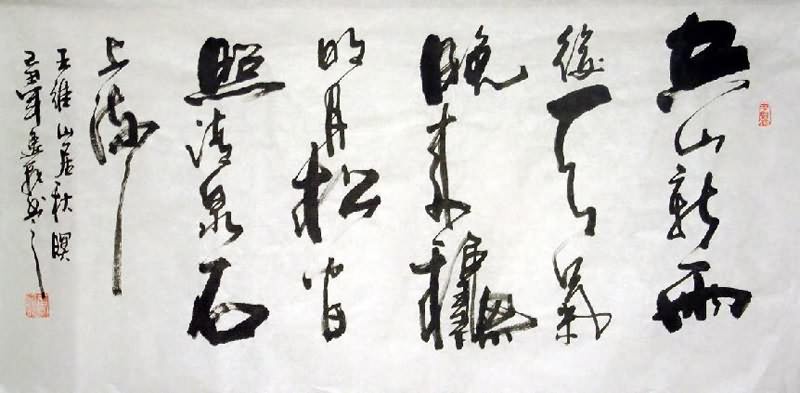 空山新雨
後天氣
晚来龝
明月松間
照清泉石
上流
王維山居秋暝
己丑年